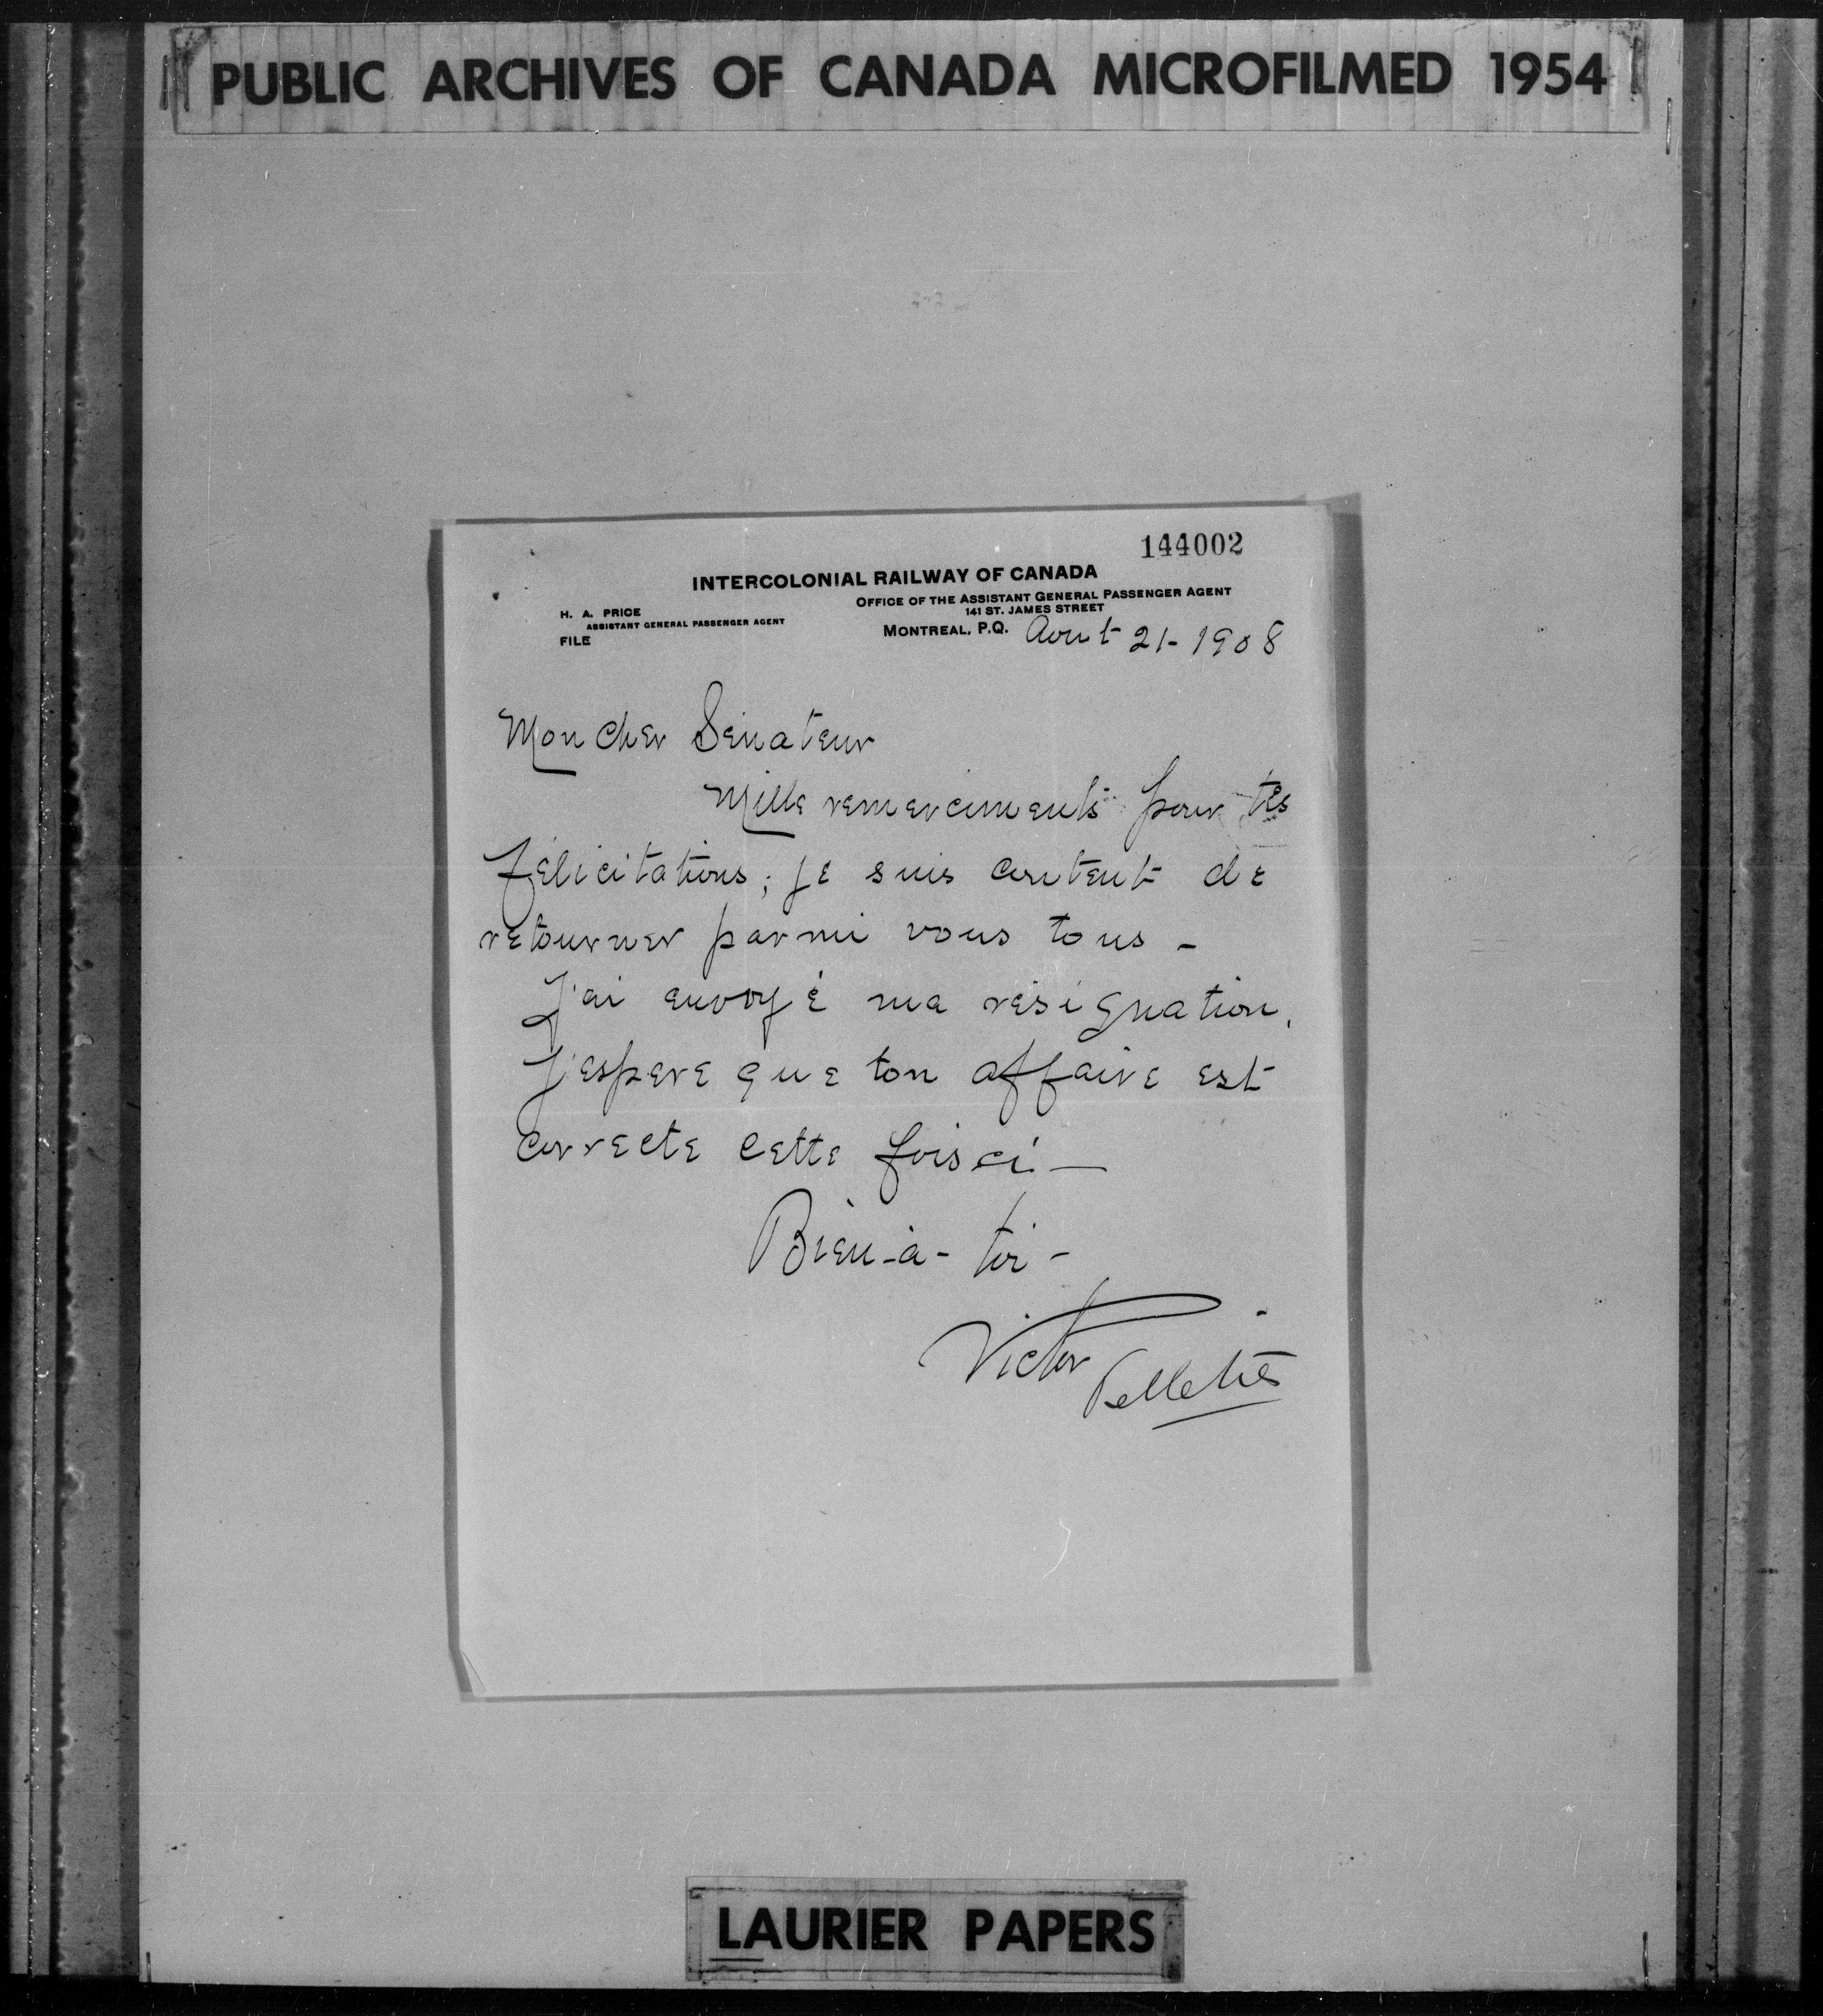 PUBLIC ARCHIVES OF CANADA MICROFILMED 1954
144002
INTERCOLONIAL RAILWAY OF CANADA
OFFICE OF THE ASSISTANT GENERAL PASSENGER AGENT
141 ST. JAMES STREET
H. A. PRICE
ASSISTANT GENERAL PASSENGER AGENT
FILE
MONTREAL, P.Q. Aout 21 - 1908
Mon cher Sénateur
Mille remerciments pour tes
félicitations; je suis content de
retourner parmi vous tous -
J'ai envoyé ma résignation,
J'espere que ton affaire est
correcte cette fois ci —
Bien-à-toi -
Victor
Pelletier
LAURIER PAPERS